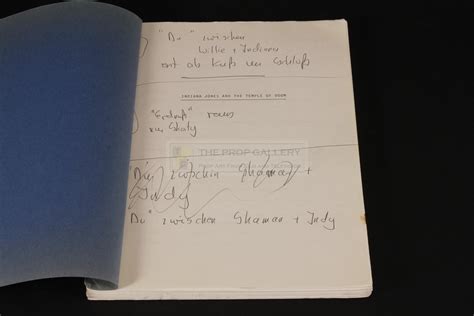 "Du" zwischen
Willie + Indianer
erst ab Kuß im Schloß
INDIANA JONES AND THE TEMPLE OF DOOM
raus
zu Shorty
THE PROP GALLERY
zwischen Shaman +
Indy
"Du" zwischen Shaman + Indy